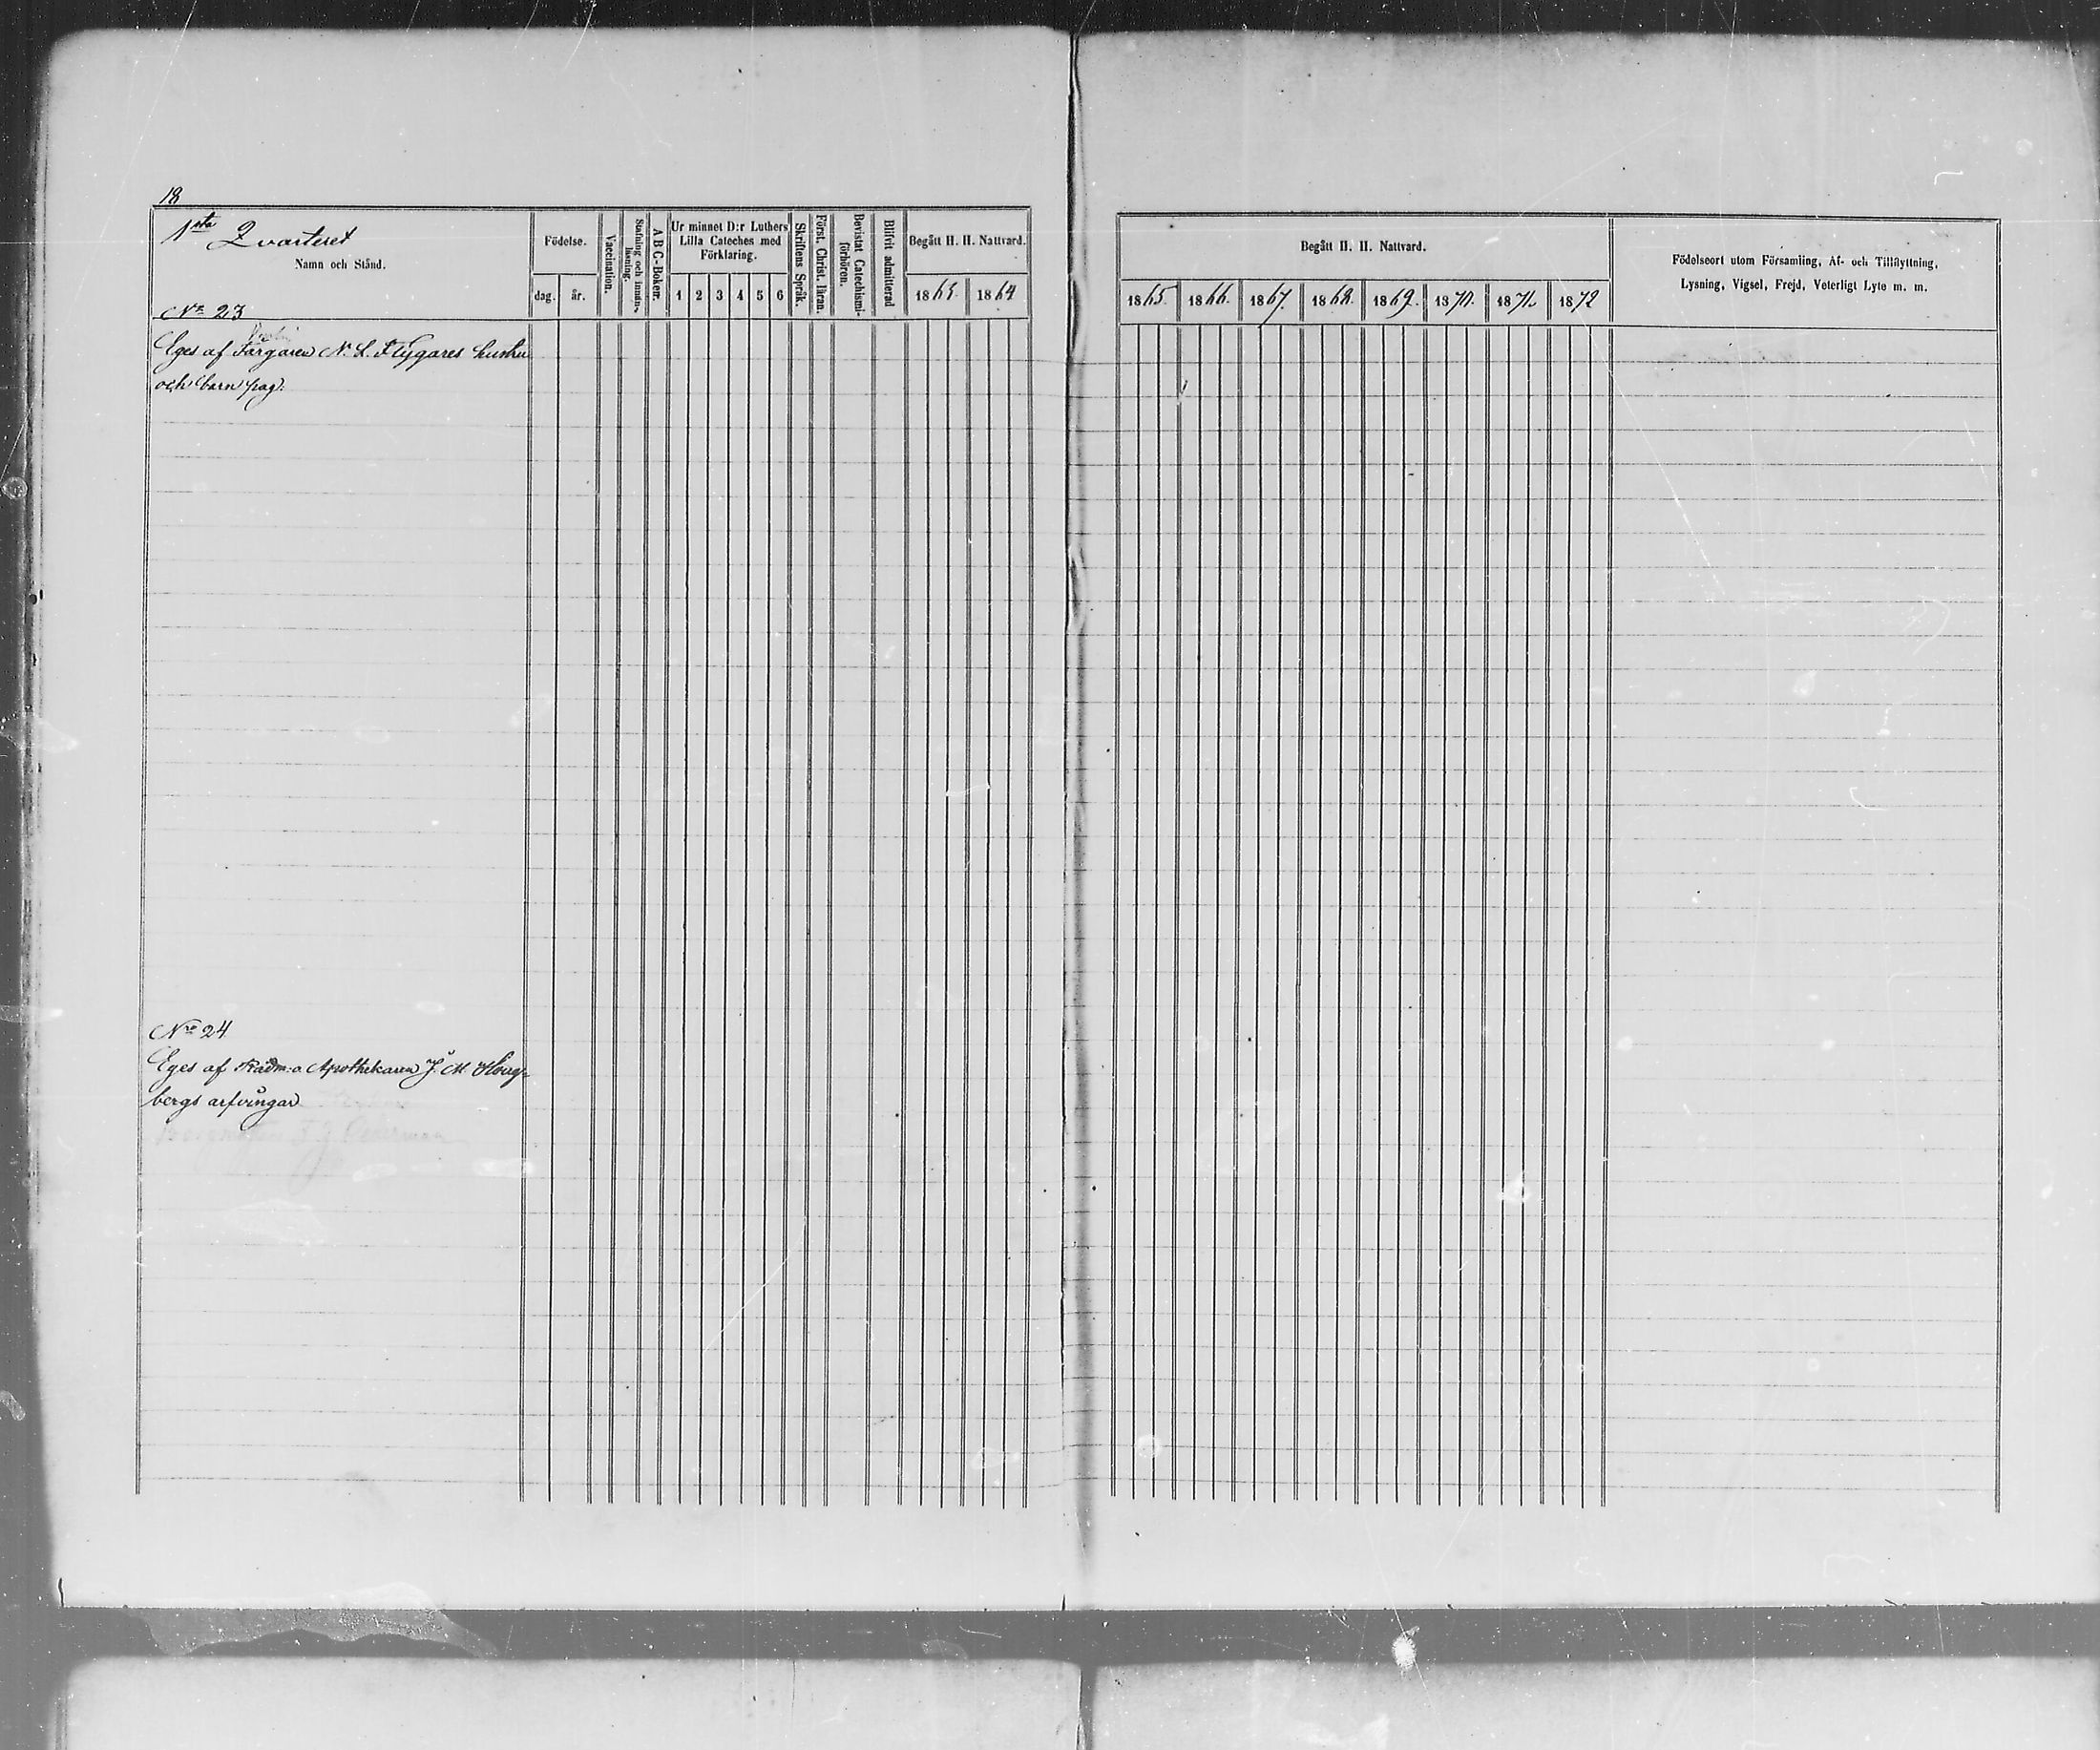 18
1sta Qvarteret
Namn och Stånd.
Födelse.
dag. år.
Vaccination.
Stafning och innan-läsning.
A B C-Boken.
Ur minnet D:r Luthers
Lilla Cateches med
Förklaring.
1 2 3 4 5 6
Skriftens Språk.
Först. Christ. läran.
Bevistat Catechismi-förhören.
Blifvit admitterad
Begått H. H. Nattvard.
1863. 1864
Begått H. H. Nattvard.
1865. 1866. 1867. 1868. 1869. 1870. 1871. 1872
Födelseort utom Församling, Af- och Tillflyttning,
Lysning, Vigsel, Frejd, Veterligt Lyte m. m.
No 23
Eges af Färgaren N. L. Flygares hustru
och barn pag.
No 24
Eges af Rådm: o Apothekaren J. M.
bergs arfvingar